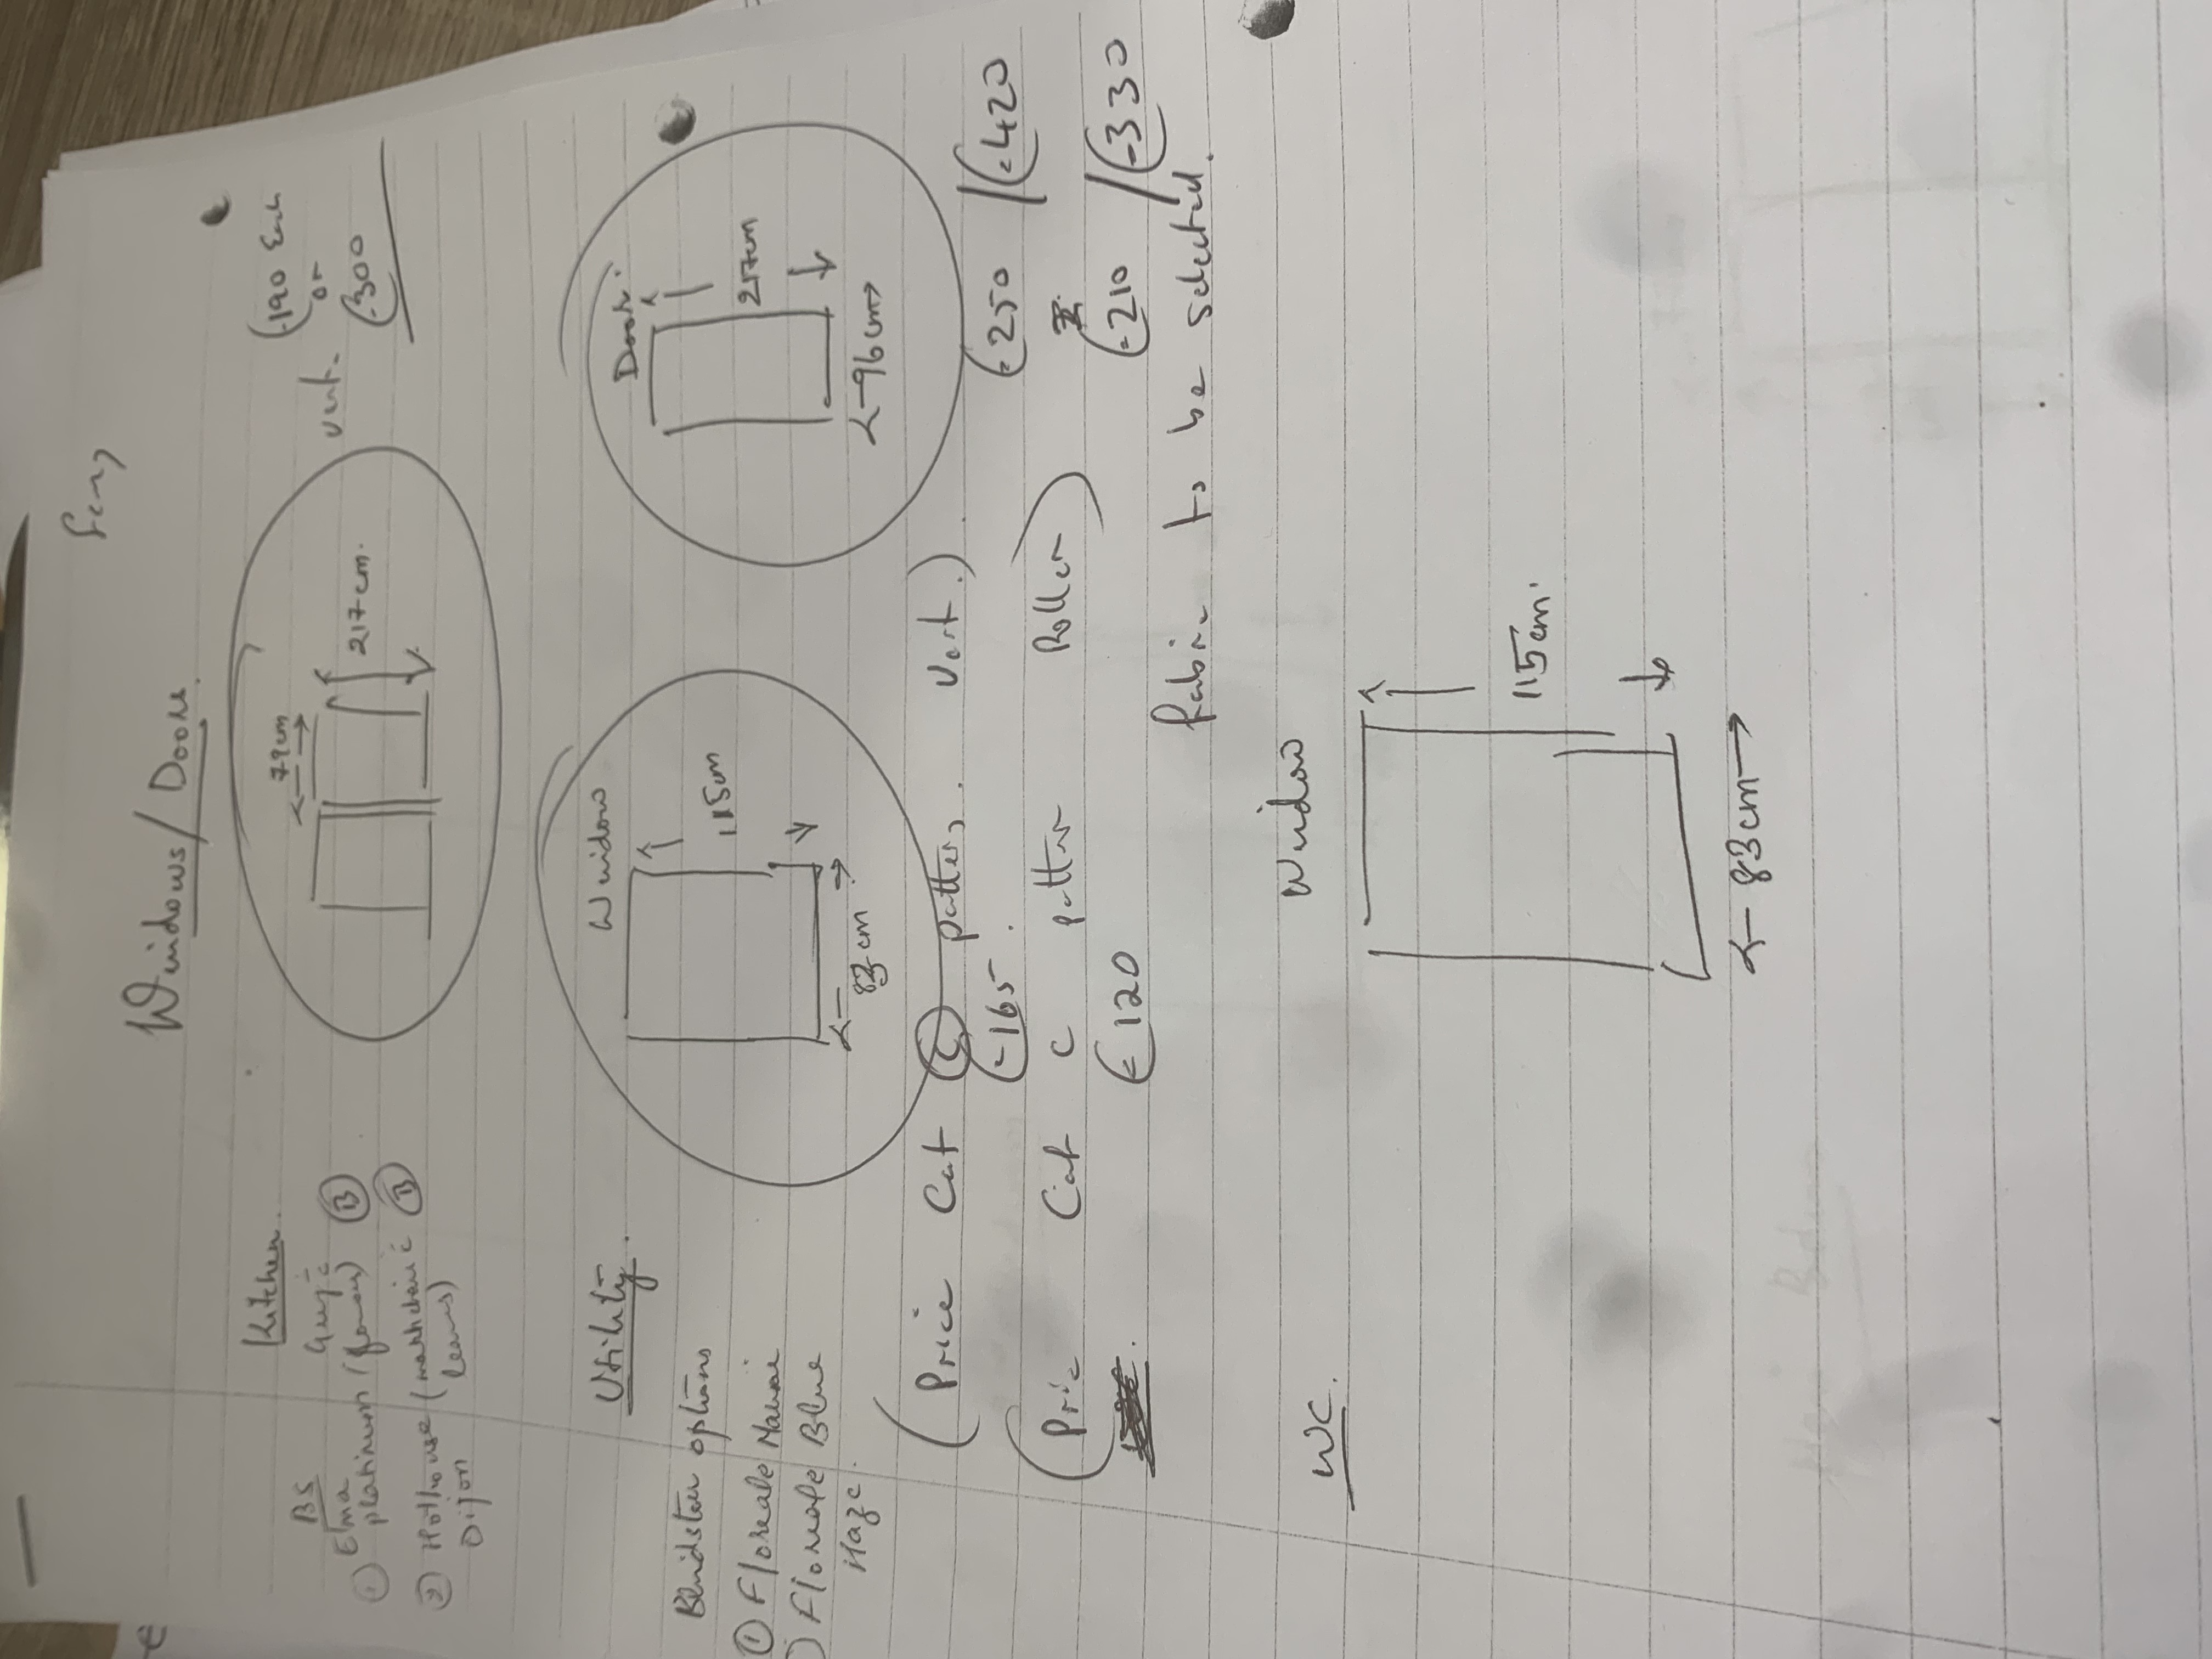 Windows / Doors.
Kitchen.
BS
① Elma
platinum
B
② Hothouse
B
Dijon
<- 79cm ->
217cm.
vert.
(-190 Each
or
(-300
Utility.
Blindster options
① Floreale
) Floreale Blue
Haze.
Window
115cm
<- 83 cm. ->
Door.
217cm
<- 96cm ->
(Price Cat C patters. vert.)
(-165.
(-250 / (-420
(Pric Cat C patter Roller)
(-120
(-210 / (-330
fabric to be selected.
WC.
Window
115cm.
<- 83cm ->